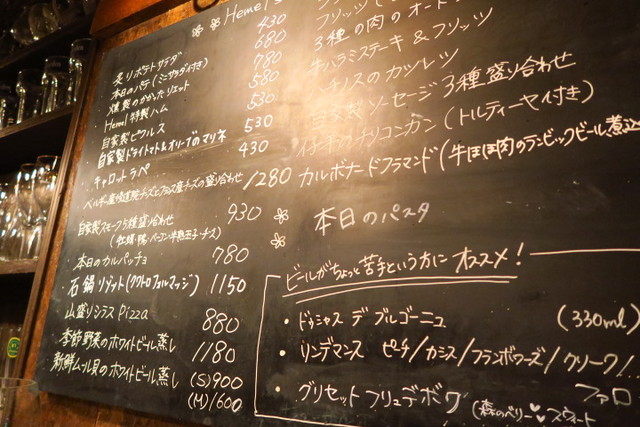 Hemel's
430
炙りポテトサラダ 680
本日のパテ(ミニサラダ付き) 780
燻製のさかなリエット 580
Hemel特製ハム 530
自家製ピクルス 530
自家製ドライトマト&オリーブのマリネ 430
キャロットラペ
ベルギー産修道院チーズとフランス産チーズの盛り合わせ 1280
自家製スモーク5種盛り合わせ 930
(牡蠣・鴨・ベーコン・半熟玉子・チーズ)
本日のカルパッチョ 780
石鍋リゾット(クワトロフォルマッジ) 1150
山盛りシラス Pizza 880
季節野菜のホワイトビール蒸し 1180
新鮮ムール貝のホワイトビール蒸し (S)900
(M)1600
フリッツ
3種の肉のオード
牛ハラミステーキ&フリッツ
ハチノスのカツレツ
自家製ソーセージ3種盛り合わせ
イチボのチリコンカン(トルティーヤ付き)
カルボナードフラマンド(牛ほほ肉のランビックビール煮込
本日のパスタ
ビールがちょっと苦手という方にオススメ!
・ドゥシャス デ ブルゴーニュ (330ml)
・リンデマンス ピーチ/カシス/フランボワーズ/クリーク/
ファロ
・グリゼットフリュデボワ(森のベリー♥♥スウィート